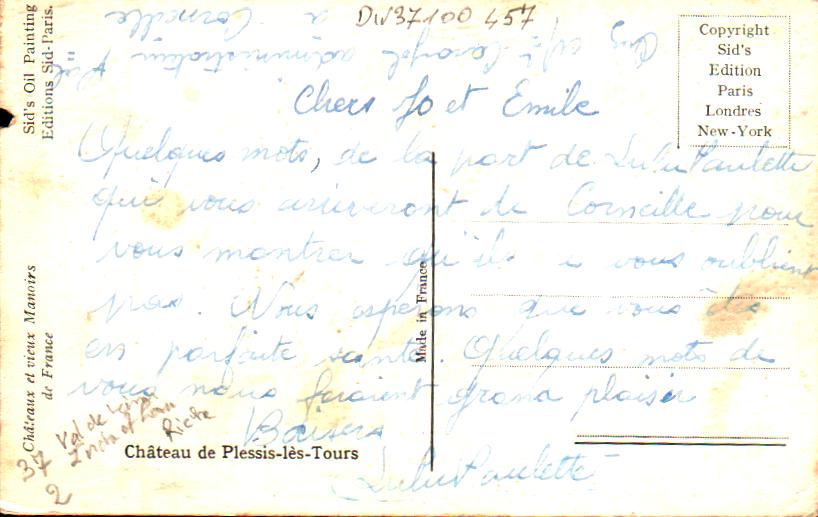 DW37100 457
à Corneille
administration
Chers Jo et Emile
Quelques mots, de la part de Lulu Paulette
qui vous arriveront de Corneille pour
vous montrer qu'ils e vous oublient
pas. Nous esperons que vous êtes
en parfaite santé. Quelques mots de
vous nous feraient grand plaisir
Baisers
Lulu Paulette
Château de Plessis-lès-Tours
Val de Loire
Riche
37
2
Châteaux et vieux Manoirs
de France
Sid's Oil Painting
Editions Sid-Paris.
Made in France
Copyright
Sid's
Edition
Paris
Londres
New-York